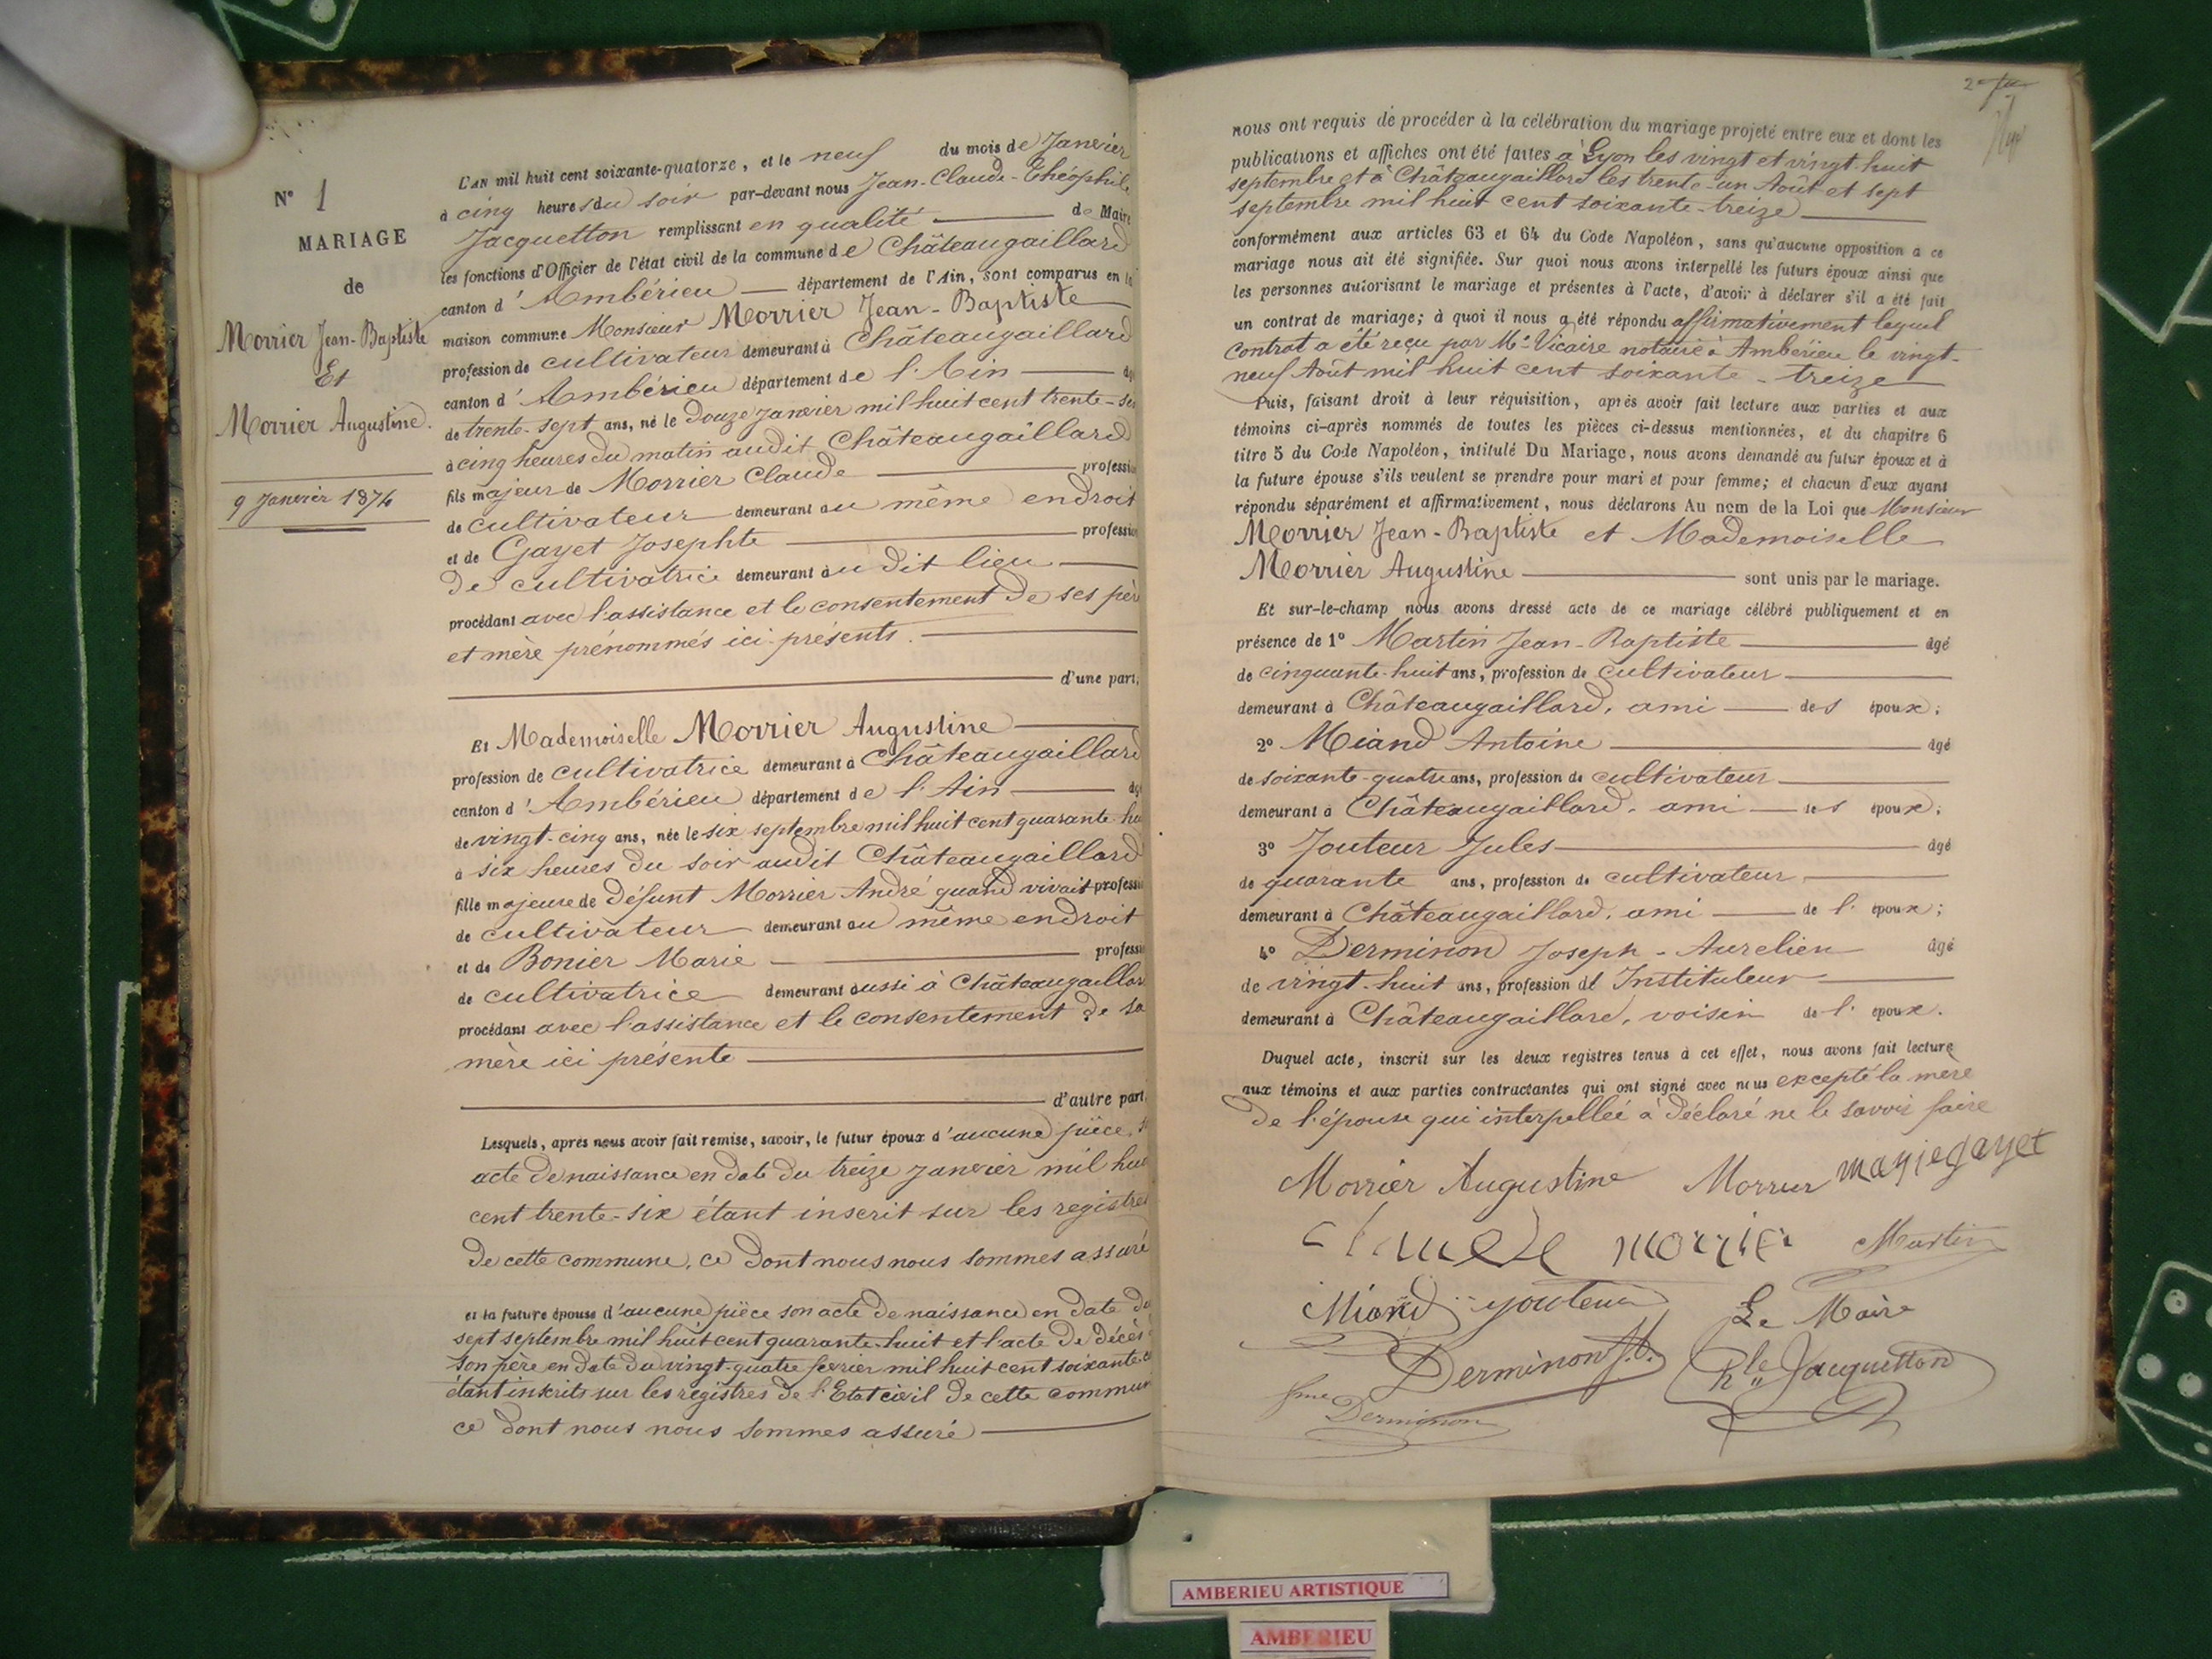 N° 1
MARIAGE
de
Morrier Jean-Baptiste
Et
Morrier Augustine.
9 Janvier 1874
L'AN mil huit cent soixante-quatorze, et le neuf du mois de Janvier
à cinq heures du soir par-devant nous Jean-Claude-Théophile
Jacquetton remplissant en qualité de Maire
les fonctions d'Officier de l'état civil de la commune de Châteaugaillard
canton d'Ambérieu département de l'Ain, sont comparus en la
maison commune Monsieur Morrier Jean-Baptiste
profession de cultivateur demeurant à Châteaugaillard
canton d'Ambérieu département de l'Ain âgé
de trente-sept ans, né le douze Janvier mil huit cent trente-
à cinq heures du matin audit Châteaugaillard
fils majeur de Morrier Claude profession
de cultivateur demeurant au même endroit
et de Gayet Josephte profession
de cultivatrice demeurant audit lieu
procédant avec l'assistance et le consentement de ses père
et mère prénommés ici présents.
d'une part,
Et Mademoiselle Morrier Augustine
profession de cultivatrice demeurant à Châteaugaillard
canton d'Ambérieu département de l'Ain âgé
de vingt-cinq ans, née le six septembre mil huit cent quarante-hu
à six heures du soir audit Châteaugaillard
fille majeure de défunt Morrier André quand vivait professi
de cultivateur demeurant au même endroit
et de Bonier Marie professi
de cultivatrice demeurant aussi à Châteaugaillar
procédant avec l'assistance et le consentement de sa
mère ici présente
d'autre part.
Lesquels, après nous avoir fait remise, savoir, le futur époux d'aucune pièce,
acte de naissance en date du treize janvier mil hui
cent trente-six étant inscrit sur les registres
de cette commune, ce dont nous nous sommes assuré
et la future épouse d'aucune pièce son acte de naissance en date du
sept septembre mil huit cent quarante-huit et l'acte de décès
son père en date du vingt-quatre février mil huit cent soixante
étant inscrits sur les registres de l'Etat civil de cette commun
ce dont nous nous sommes assuré
nous ont requis de procéder à la célébration du mariage projeté entre eux et dont les
publications et affiches ont été faites à Lyon les vingt et vingt-huit
septembre et à Châteaugaillard les trente-un Août et sept
septembre mil huit cent soixante-treize
conformément aux articles 63 et 64 du Code Napoléon, sans qu'aucune opposition à ce
mariage nous ait été signifiée. Sur quoi nous avons interpellé les futurs époux ainsi que
les personnes autorisant le mariage et présentes à l'acte, d'avoir à déclarer s'il a été fait
un contrat de mariage; à quoi il nous a été répondu affirmativement lequel
contrat a été reçu par Me Vicaire notaire à Ambérieu le vingt-
neuf Août mil huit cent soixante-treize
Puis, faisant droit à leur réquisition, après avoir fait lecture aux parties et aux
témoins ci-après nommés de toutes les pièces ci-dessus mentionnées, et du chapitre 6
titre 5 du Code Napoléon, intitulé Du Mariage, nous avons demandé au futur époux et à
la future épouse s'ils veulent se prendre pour mari et pour femme; et chacun d'eux ayant
répondu séparément et affirmativement, nous déclarons Au nom de la Loi que Monsieur
Morrier Jean-Baptiste et Mademoiselle
Morrier Augustine sont unis par le mariage.
Et sur-le-champ nous avons dressé acte de ce mariage célébré publiquement et en
présence de 1° Martin Jean-Baptiste âgé
de cinquante-huit ans, profession de cultivateur
demeurant à Châteaugaillard, ami des époux;
2° Miand Antoine âgé
de soixante-quatre ans, profession de cultivateur
demeurant à Châteaugaillard, ami des époux;
3° Jouteur Jules âgé
de quarante ans, profession de cultivateur
demeurant à Châteaugaillard, ami de l'époux;
4° Derminon Joseph-Aurelien âgé
de vingt-huit ans, profession d'Instituteur
demeurant à Châteaugaillard, voisin de l'époux.
Duquel acte, inscrit sur les deux registres tenus à cet effet, nous avons fait lecture
aux témoins et aux parties contractantes qui ont signé avec nous excepté la mère
de l'épouse qui interpellée à déclaré ne le savoir faire
Morrier Augustine Morrier mariegayet
claude morrier Martin
Miand jouteur Le Maire
Derminon J.A. Jacquetton
fme Derminon
AMBERIEU ARTISTIQUE
AMBERIEU